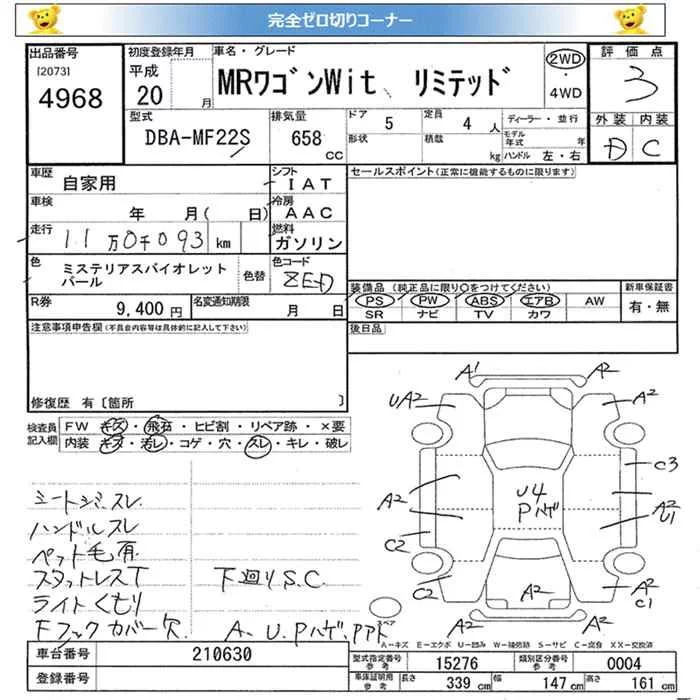 完全ゼロ切りコーナー
出品番号 初度登録年月 車名・グレード 評価点
[2073] 平成
4968 20 月 MRワゴンWit リミテッド 2WD・4WD 3
型式 排気量 ドア 5 定員 4 人 ディーラー・並行 外装 内装
DBA-MF22S 658 cc 形状 積載 kg モデル年式 年 ハンドル 左・右 C
車歴 自家用 シフト IAT セールスポイント(正常に機能するものに限ります)
車検 年 月( 日) 冷房 AAC
走行 11万0千093 km 燃料 ガソリン
色 ミステリアスバイオレットパール 色替 色コード
装備品(純正品に限り○をつけてください) 新車保証書
R券 9,400円 名変通知期限 月 日 PS PW ABS エアB AW 有・無
SR ナビ TV カワ
注意事項申告欄(不具合内容等は具体的に記入して下さい) 後日品
修復歴 有〔箇所 〕
検査員記入欄 FW キズ・飛石・ヒビ割・リペア跡・×要
内装 キズ・汚レ・コゲ・穴・スレ・キレ・破レ
A1 A2
UA2 A2
C3
A2 U4 Pハゲ A2 U1
C2
C2 A2 A2 C1
A2 A2
シートシミスレ
ハンドルスレ
ペット毛有
スタットレスT 下廻りS.C.
ライトくもり
Fフックカバー欠 A.U.Pハゲ.Pアト
A-キズ E-エクボ U-凹み W-補修跡 S-サビ C-腐食 XX-交換済
車台番号 210630 型式指定番号 参考 15276 類別区分番号 参考 0004
登録番号 車庫証明用 参考 長さ 339 cm 幅 147 cm 高さ 161 cm